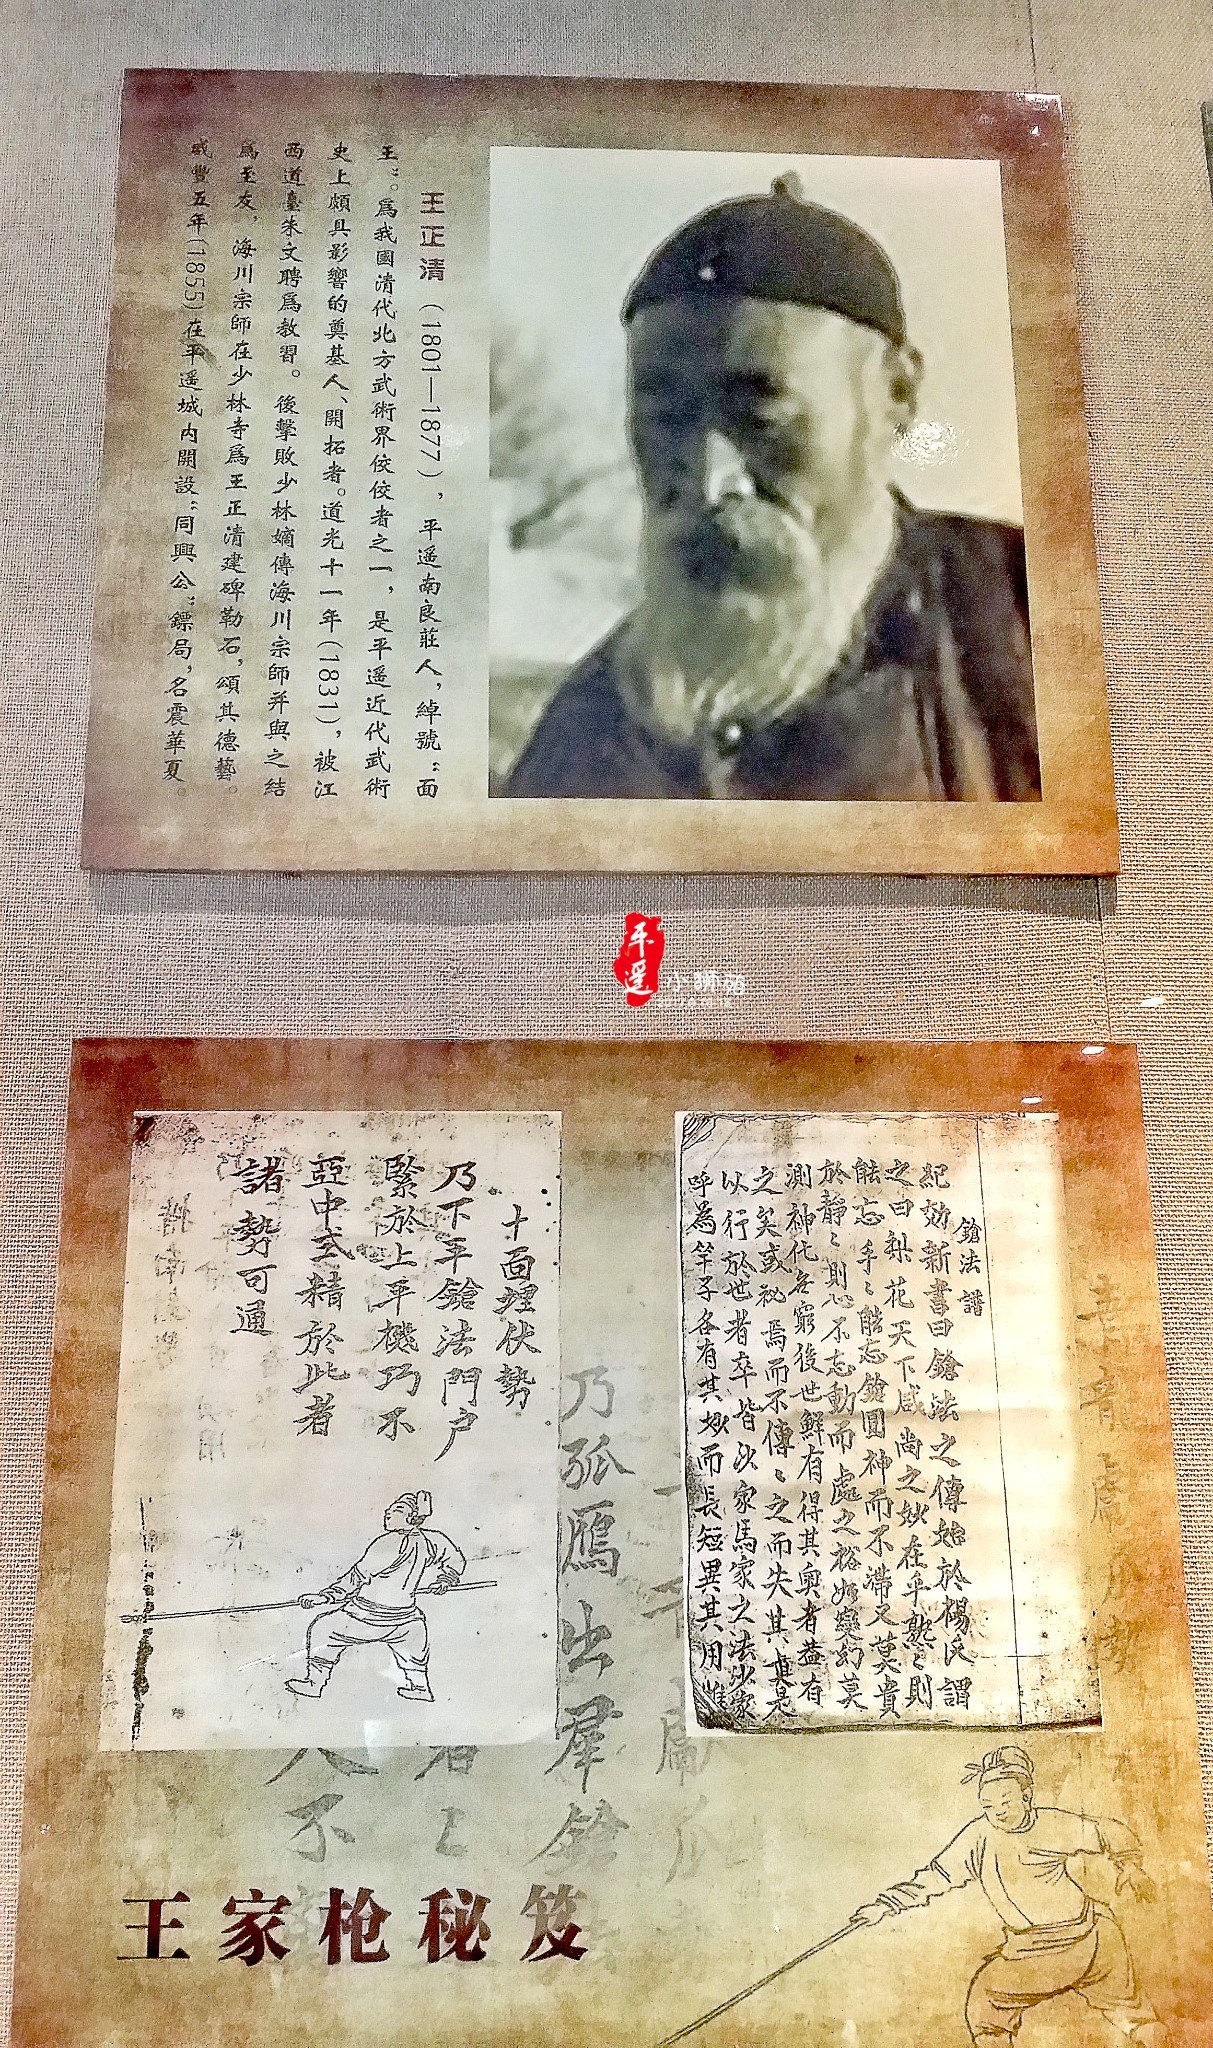 王正清（1801—1877），平遥南良莊人，綽號“面
王”。爲我國清代北方武術界佼佼者之一，是平遥近代武術
史上頗具影響的奠基人、開拓者。道光十一年(1831)，被江
西道臺朱文聘爲教習。後擊敗少林嫡傳海川宗師并與之結
爲至友，海川宗師在少林寺爲王正清建碑勒石，頌其德藝。
咸豐五年(1855)在平遥城内開設“同興公”鏢局，名震華夏。
平遥
鎗法譜
紀効新書曰鎗法之傳始於楊氏謂
之曰梨花天下咸尚之妙在乎熟〻則
能忘手〻能忘鎗圓神而不滯又莫貴
於靜〻則心不忘動而處之裕如變幻莫
測神化無窮後世鮮有得其奥者葢有
之矣或祕焉而不傳〻之而失其真是
以行於世者卒皆沙家馬家之法沙家
呼為竿子各有其妙而長短異其用惟
十面埋伏勢
乃下平鎗法門户
緊於上平機巧不
亞中式精於此者
諸勢可通
乃孤鴈出羣鎗
人不
王家枪秘笈